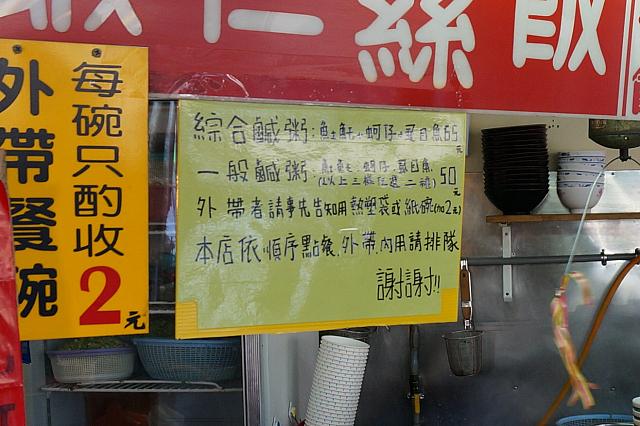 仁絲飯
外帶餐碗
每碗只酌收2元
綜合鹹粥:魚土魠+蚵仔+虱目魚65元
一般鹹粥:魚土魠.蚵仔.虱目魚50元
(以上三樣任選二種)
外帶者請事先告知用熱塑袋或紙碗(no2元)
本店依順序點餐,外帶,內用請排隊
謝謝!!